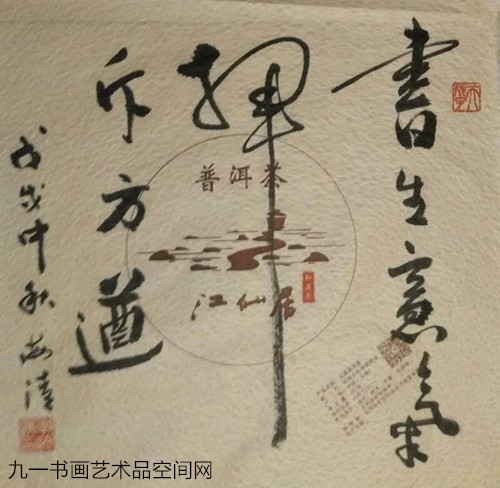 書生意氣
揮
斥方遒
戊戌中秋尚清
普洱茶
江仙居
九一书画艺术品空间网